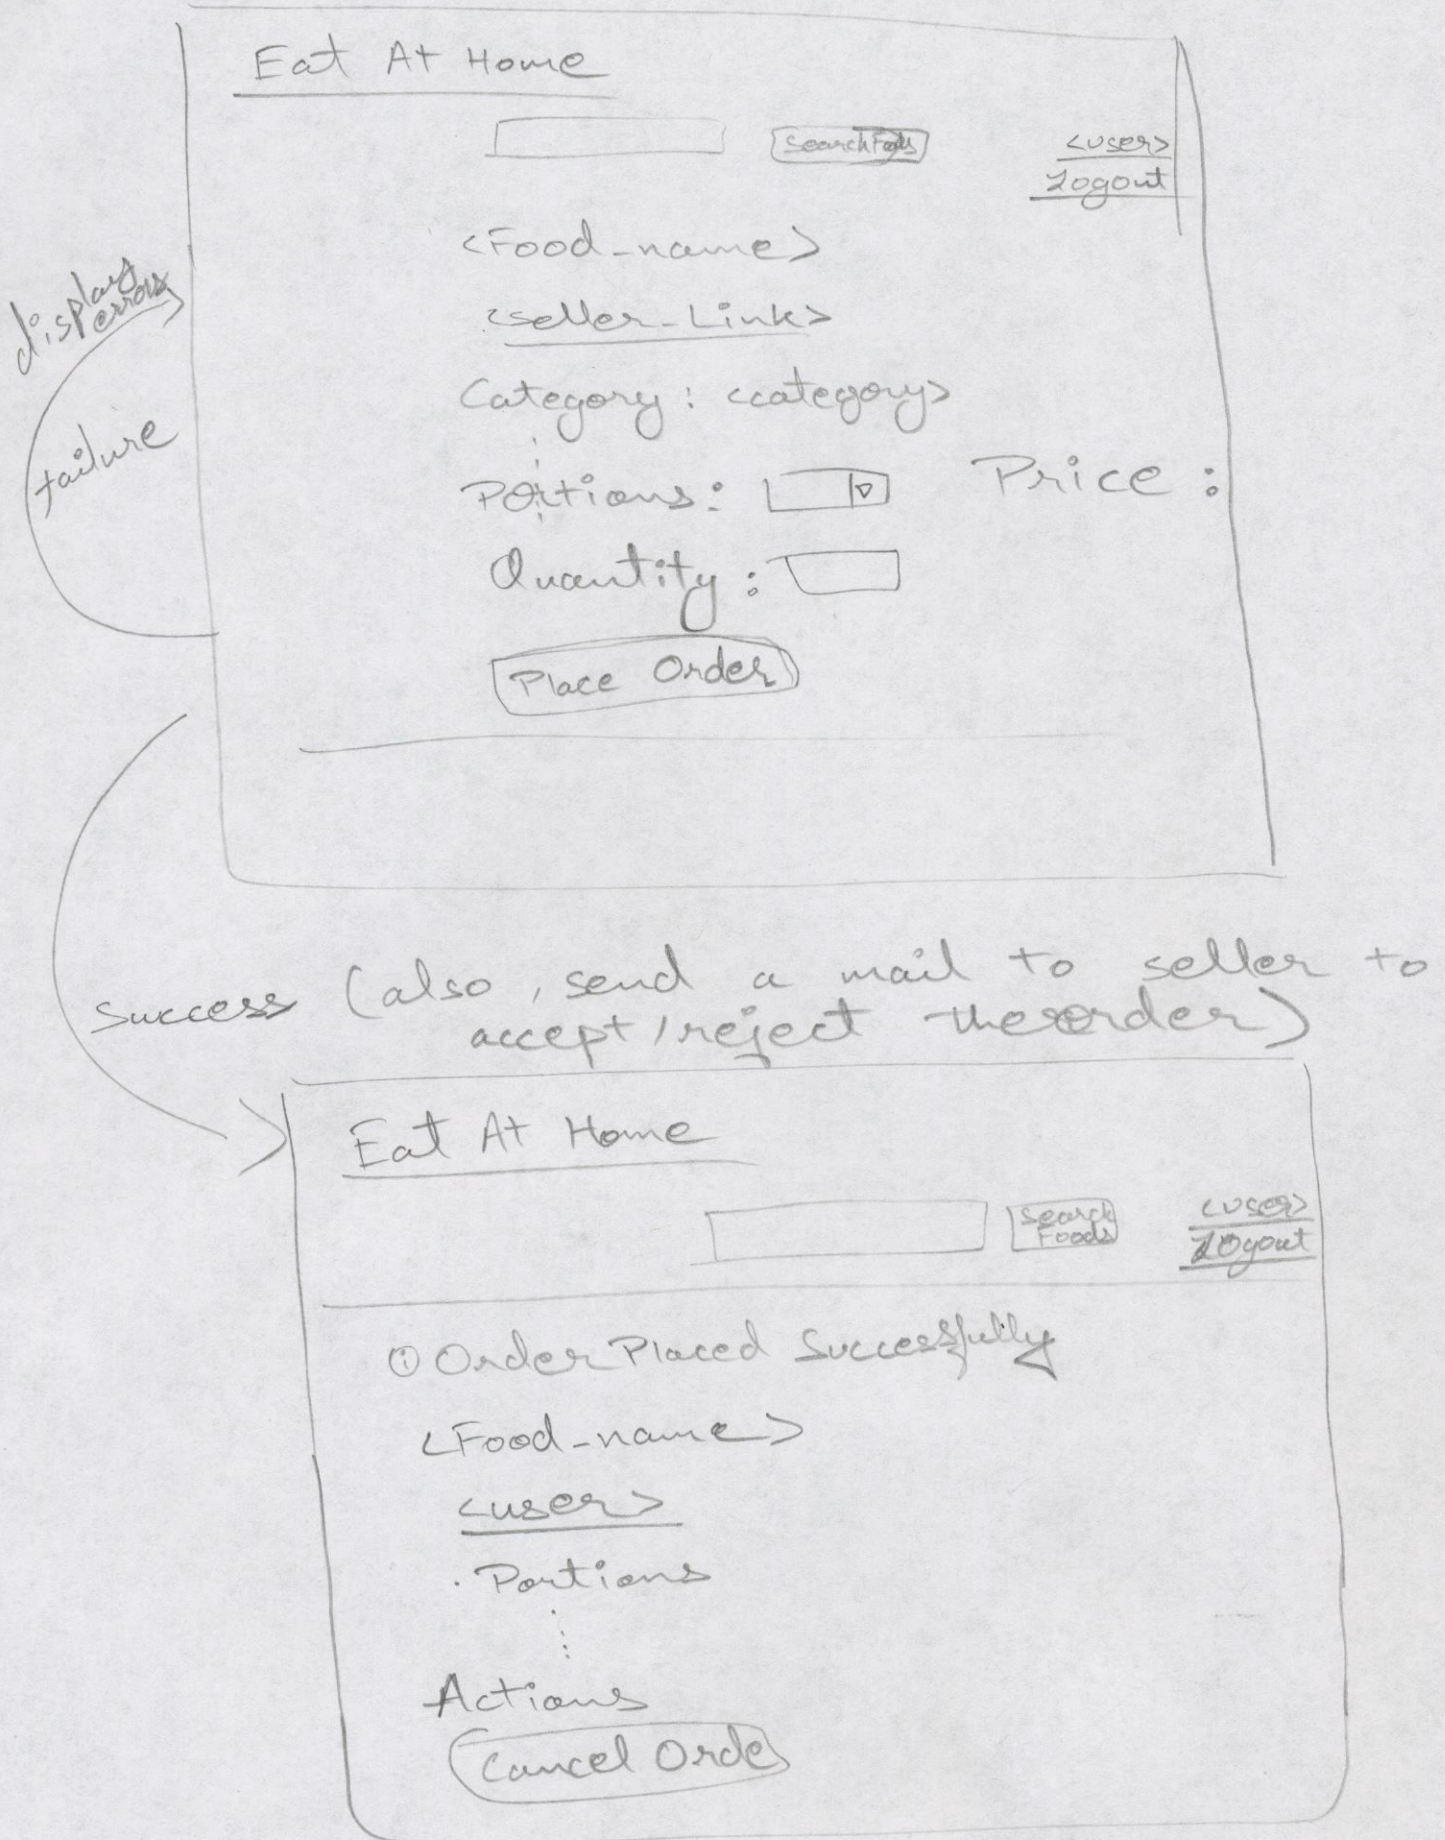 Eat At Home
Search Foods
<user>
Logout
<Food-name>
<seller-Link>
Category: <category>
Portions: Price:
Quantity:
Place Order
display errors
failure
Success (also, send a mail to seller to
accept/reject the order)
Eat At Home
Search
Foods
<user>
Logout
Order Placed Successfully
<Food-name>
<user>
Portions
Actions
Cancel Orde